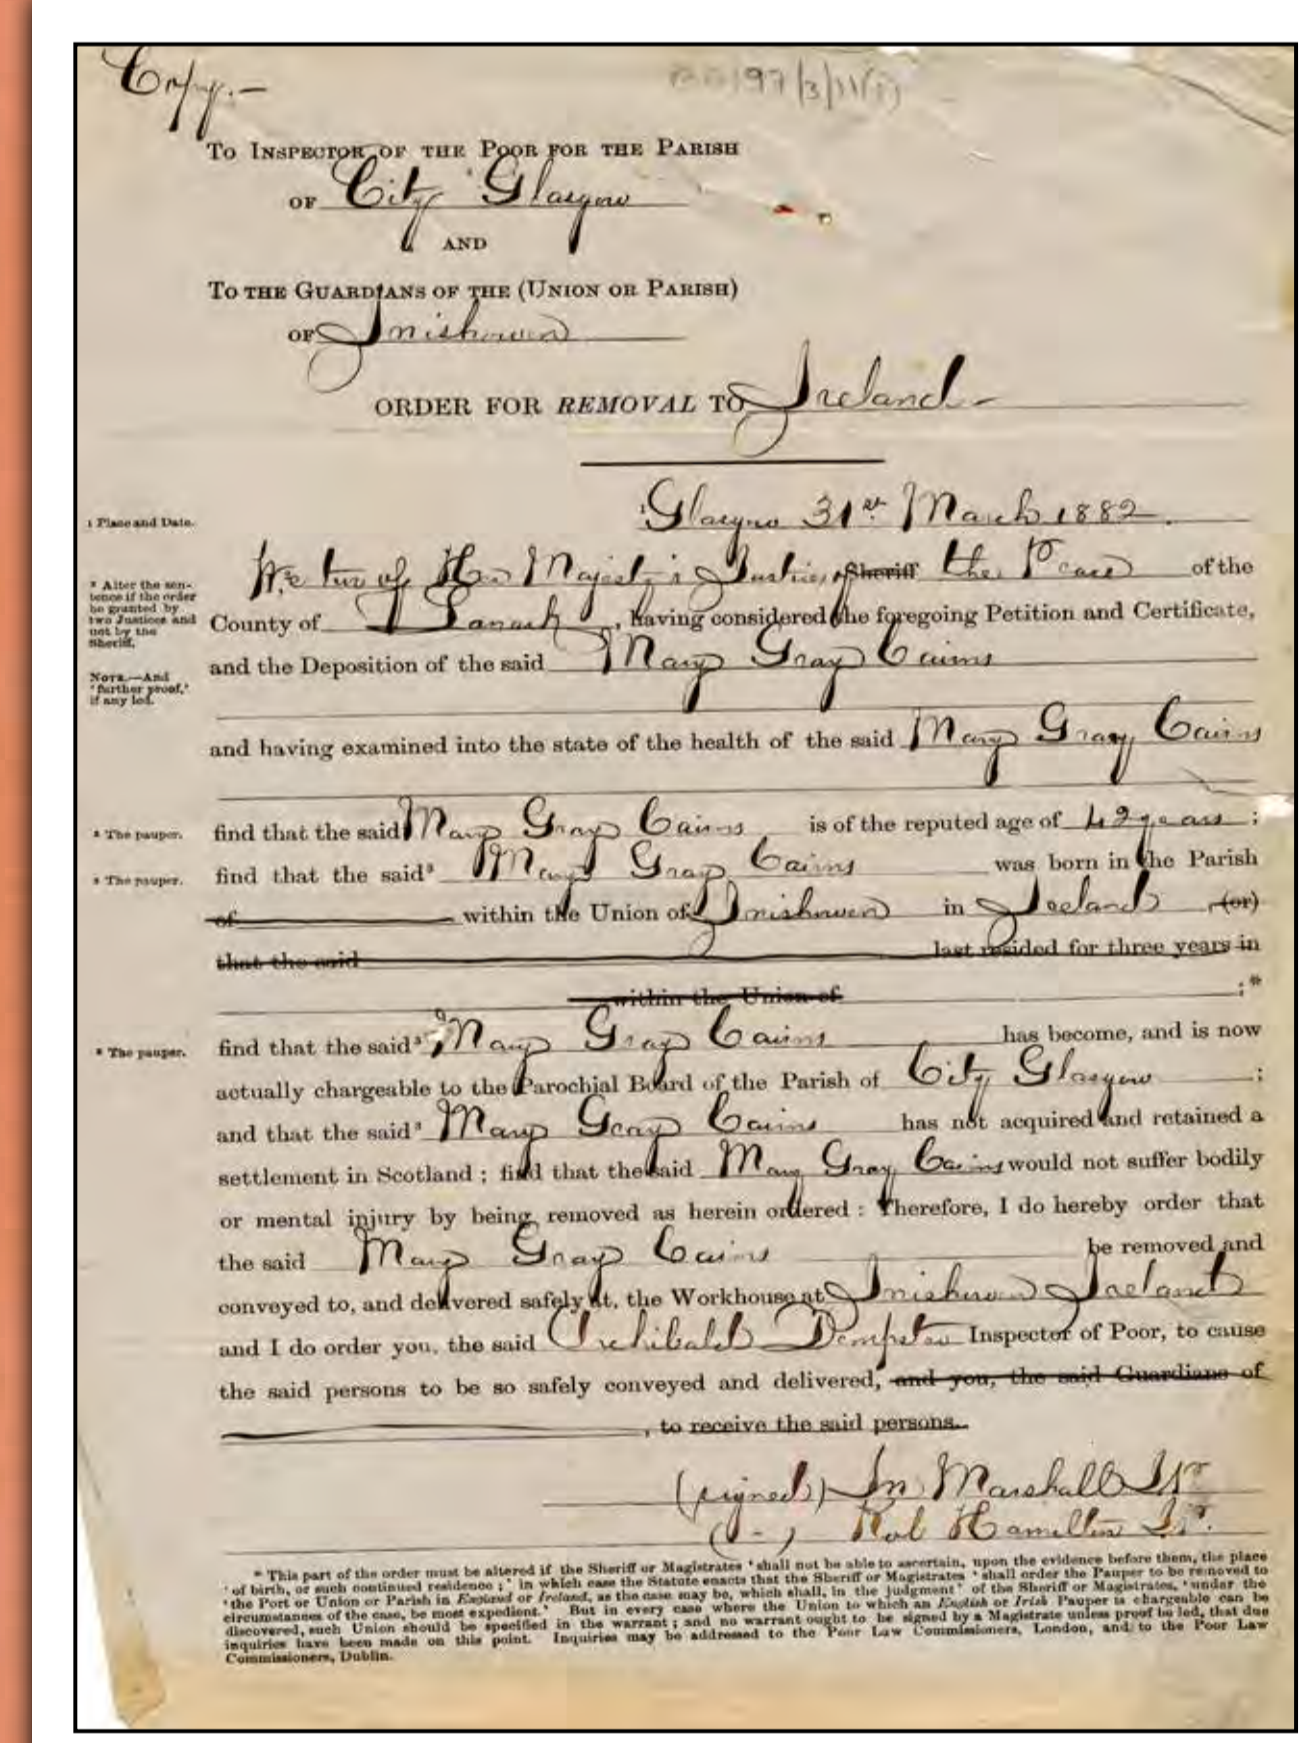 Copy.—
97/3/11(1)
To Inspector of the Poor for the Parish
of City Glasgow
and
To the Guardians of the (Union or Parish)
of Inishowen
ORDER FOR REMOVAL TO Ireland -
1 Place and Date.
1 Glasgow 31st March 1882.
2 Alter the sen-
tence if the order
be granted by
two Justices and
not by the
Sheriff.
We two of Her Majesty's Justices of Sheriff the Peace of the
County of Lanark, having considered the foregoing Petition and Certificate,
and the Deposition of the said Mary Gray Cairns
Note.—And
'further proof,'
if any led.
and having examined into the state of the health of the said Mary Gray Cairns
3 The pauper.
find that the said Mary Gray Cairns is of the reputed age of 42 years;
3 The pauper.
find that the said3 Mary Gray Cairns was born in the Parish
of within the Union of Inishowen in Ireland, (or)
that the said last resided for three years in
within the Union of ;*
3 The pauper.
find that the said3 Mary Gray Cairns has become, and is now
actually chargeable to the Parochial Board of the Parish of City Glasgow ;
and that the said3 Mary Gray Cairns has not acquired and retained a
settlement in Scotland; find that the said Mary Gray Cairns would not suffer bodily
or mental injury by being removed as herein ordered: Therefore, I do hereby order that
the said Mary Gray Cairns be removed and
conveyed to, and delivered safely at, the Workhouse at Inishowen Ireland
and I do order you, the said Archibald Dempster Inspector of Poor, to cause
the said persons to be so safely conveyed and delivered, and you, the said Guardians of
, to receive the said persons.
(signed) Jn Marshall J.P.
( - ) Rob Hamilton J.P.
* This part of the order must be altered if the Sheriff or Magistrates 'shall not be able to ascertain, upon the evidence before them, the place
'of birth, or such continued residence;' in which case the Statute enacts that the Sheriff or Magistrates 'shall order the Pauper to be removed to
'the Port or Union or Parish in England or Ireland, as the case may be, which shall, in the judgment' of the Sheriff or Magistrates, 'under the
circumstances of the case, be most expedient.' But in every case where the Union to which an English or Irish Pauper is chargeable can be
discovered, such Union should be specified in the warrant; and no warrant ought to be signed by a Magistrate unless proof be led, that due
inquiries have been made on this point. Inquiries may be addressed to the Poor Law Commissioners, London, and to the Poor Law
Commissioners, Dublin.